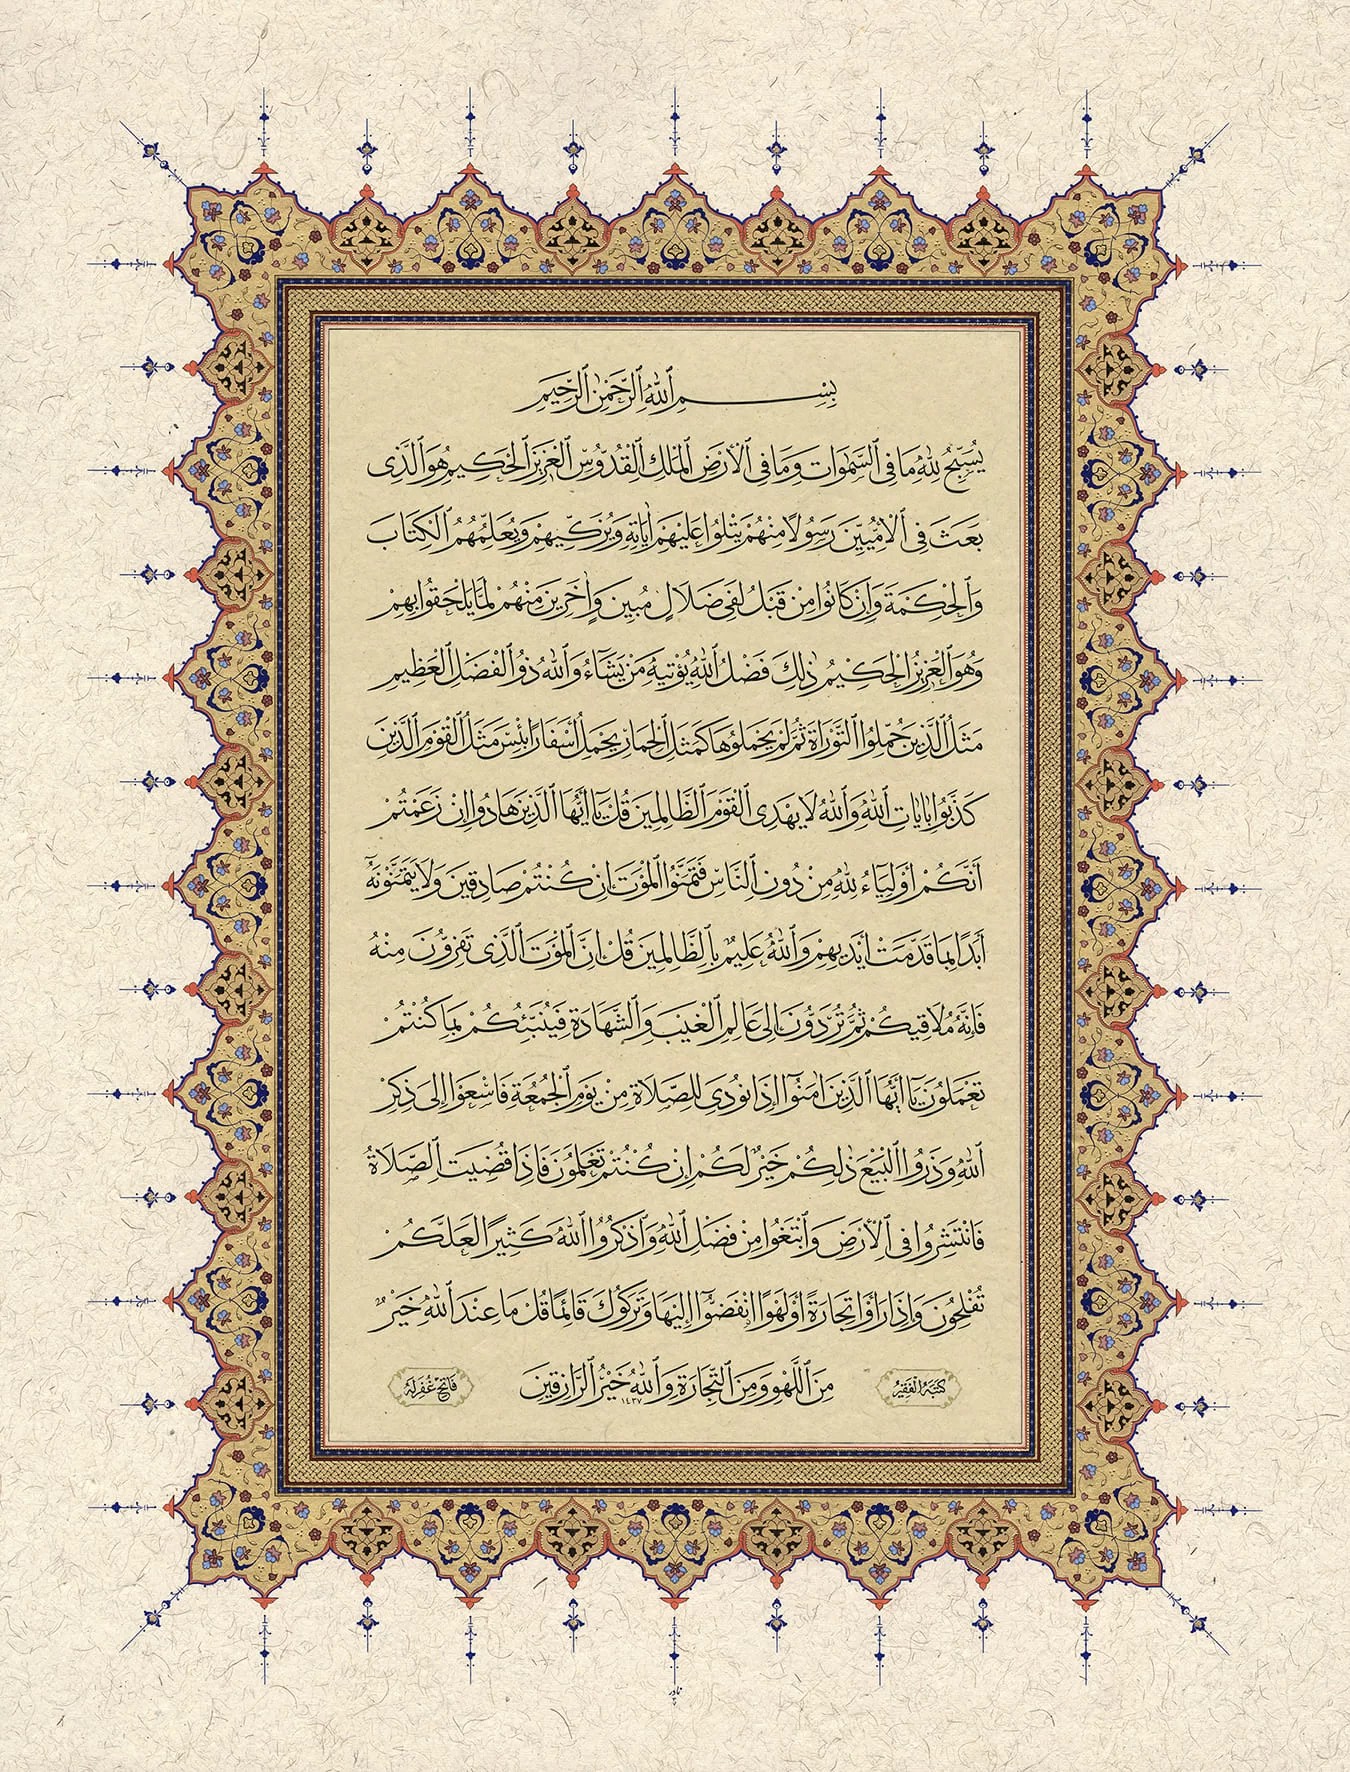 بِسْمِ ٱللّٰهِ ٱلرَّحْمٰنِ ٱلرَّحِيمِ
يُسَبِّحُ لِلّٰهِ مَا فِى ٱلسَّمٰوَاتِ وَمَا فِى ٱلْأَرْضِ ٱلْمَلِكِ ٱلْقُدُّوسِ ٱلْعَزِيزِ ٱلْحَكِيمِ هُوَ ٱلَّذِى
بَعَثَ فِى ٱلْأُمِّيِّينَ رَسُولًا مِنْهُمْ يَتْلُوا عَلَيْهِمْ اٰيَاتِهِ وَيُزَكِّيهِمْ وَيُعَلِّمُهُمُ ٱلْكِتَابَ
وَٱلْحِكْمَةَ وَإِنْ كَانُوا مِنْ قَبْلُ لَفِى ضَلَالٍ مُبِينٍ وَاٰخَرِينَ مِنْهُمْ لَمَّا يَلْحَقُوا بِهِمْ
وَهُوَ ٱلْعَزِيزُ ٱلْحَكِيمُ ذٰلِكَ فَضْلُ ٱللّٰهِ يُؤْتِيهِ مَنْ يَشَآءُ وَٱللّٰهُ ذُو ٱلْفَضْلِ ٱلْعَظِيمِ
مَثَلُ ٱلَّذِينَ حُمِّلُوا ٱلتَّوْرَاةَ ثُمَّ لَمْ يَحْمِلُوهَا كَمَثَلِ ٱلْحِمَارِ يَحْمِلُ أَسْفَارًا بِئْسَ مَثَلُ ٱلْقَوْمِ ٱلَّذِينَ
كَذَّبُوا بِاٰيَاتِ ٱللّٰهِ وَٱللّٰهُ لَا يَهْدِى ٱلْقَوْمَ ٱلظَّالِمِينَ قُلْ يَآ أَيُّهَا ٱلَّذِينَ هَادُوا إِنْ زَعَمْتُمْ
أَنَّكُمْ أَوْلِيَاءُ لِلّٰهِ مِنْ دُونِ ٱلنَّاسِ فَتَمَنَّوُا ٱلْمَوْتَ إِنْ كُنْتُمْ صَادِقِينَ وَلَا يَتَمَنَّوْنَهُ
أَبَدًا بِمَا قَدَّمَتْ أَيْدِيهِمْ وَٱللّٰهُ عَلِيمٌ بِٱلظَّالِمِينَ قُلْ إِنَّ ٱلْمَوْتَ ٱلَّذِى تَفِرُّونَ مِنْهُ
فَإِنَّهُ مُلَاقِيكُمْ ثُمَّ تُرَدُّونَ إِلٰى عَالِمِ ٱلْغَيْبِ وَٱلشَّهَادَةِ فَيُنَبِّئُكُمْ بِمَا كُنْتُمْ
تَعْمَلُونَ يَآ أَيُّهَا ٱلَّذِينَ اٰمَنُوٓا إِذَا نُودِىَ لِلصَّلَاةِ مِنْ يَوْمِ ٱلْجُمُعَةِ فَاسْعَوْا إِلٰى ذِكْرِ
ٱللّٰهِ وَذَرُوا ٱلْبَيْعَ ذٰلِكُمْ خَيْرٌ لَكُمْ إِنْ كُنْتُمْ تَعْلَمُونَ فَإِذَا قُضِيَتِ ٱلصَّلَاةُ
فَانْتَشِرُوا فِى ٱلْأَرْضِ وَٱبْتَغُوا مِنْ فَضْلِ ٱللّٰهِ وَٱذْكُرُوا ٱللّٰهَ كَثِيرًا لَعَلَّكُمْ
تُفْلِحُونَ وَإِذَا رَأَوْا تِجَارَةً أَوْ لَهْوًا ٱنْفَضُّوٓا إِلَيْهَا وَتَرَكُوكَ قَائِمًا قُلْ مَا عِنْدَ ٱللّٰهِ خَيْرٌ
كتبه الفقير
مِنَ ٱللَّهْوِ وَمِنَ ٱلتِّجَارَةِ وَٱللّٰهُ خَيْرُ ٱلرَّازِقِينَ
١٤٣٧
فاتح غفر له
نادر